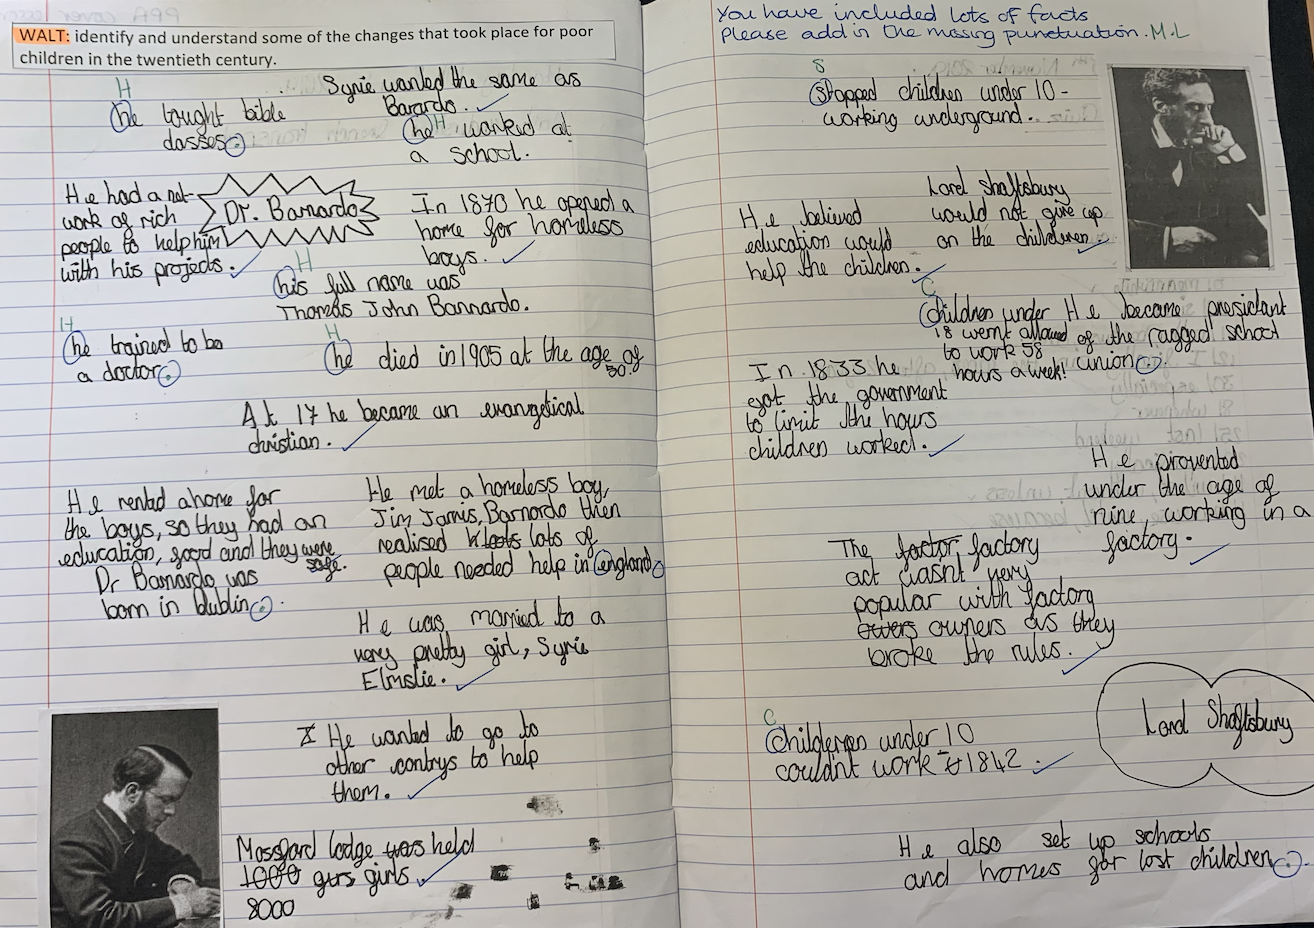 WALT: identify and understand some of the changes that took place for poor
children in the twentieth century.
H
he tought bible
classes.
Syrie wanted the same as
Barardo.
he H worked at
a school.
He had a net-
work of rich
people to help him
with his projects.
Dr. Barnardo
In 1870 he opened a
home for homeless
boys.
H
his full name was
Thomas John Barnardo.
H
he trained to be
a doctor.
H
he died in 1905 at the age of
At 17 he became an evangelical
christian.
He rented a home for
the boys, so they had an
education, food and they were
safe.
Dr Barnardo was
born in dublin.
He met a homeless boy,
Jim Jarvis, Barnardo then
realised lots of
people needed help in england.
He was married to a
very pretty girl, Syrie
Elmslie.
He wanted to go to
other contrys to help
them.
Mossford lodge was held
1000 girls
8000
You have included lots of facts
Please add in the missing punctuation. M.L
S
Stopped children under 10-
working underground.
He believed
education would
help the children.
Lord Shaftsbury
would not give up
on the childeren.
C
Children under
18 wernt allowed
to work 58
hours a week!
He became presidant
of the ragged school
union.
In 1833 he
got the government
to limit the hours
children worked.
He provented
under the age of
nine, working in a
factory.
The factor, factory
act wasnt very
popular with factory
owers owners as they
broke the rules.
Lord Shaftsbury
C
Childeren under 10
couldnt work 1842.
He also set up schools
and homes for lost children.